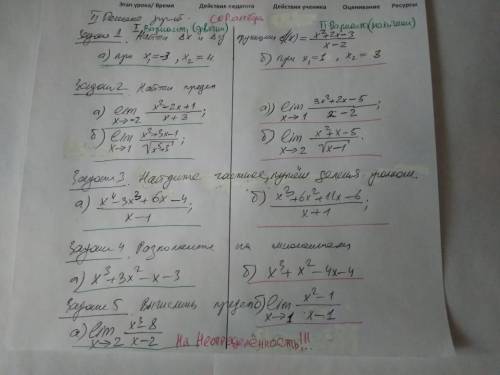 Этап урока/ Время Действия педагога Действия ученика Оценивание Ресурсы
I) Вариант (девочки) II) Вариант (мальчики)
Задача 1. Найти Δx и Δy функции f(x) = (x²+2x-3)/(x-2)
а) при x₁=-3, x₂=4 б) при x₁=1, x₂=3
Задача 2 Найти предел
а) lim x→-2 (x²-2x+1)/(x+3); а) lim x→1 (3x²+2x-5)/(x-2);
б) lim x→1
б) lim x→2 (x²+x-5)/√(x-1)
Задача 3. Найдите частное, путём деления уголком.
а) (x⁴-3x³+6x-4)/(x-1); б) (x³+6x²+11x-6)/(x+1);
Задача 4 Разложите на множители
а) x³+3x²-x-3 б) x³+x²-4x-4
Задача 5 Вычислить предел б) lim x→1 (x²-1)/(x-1)
а) lim x→2 (x³-8)/(x-2) На Неопределённость!!!